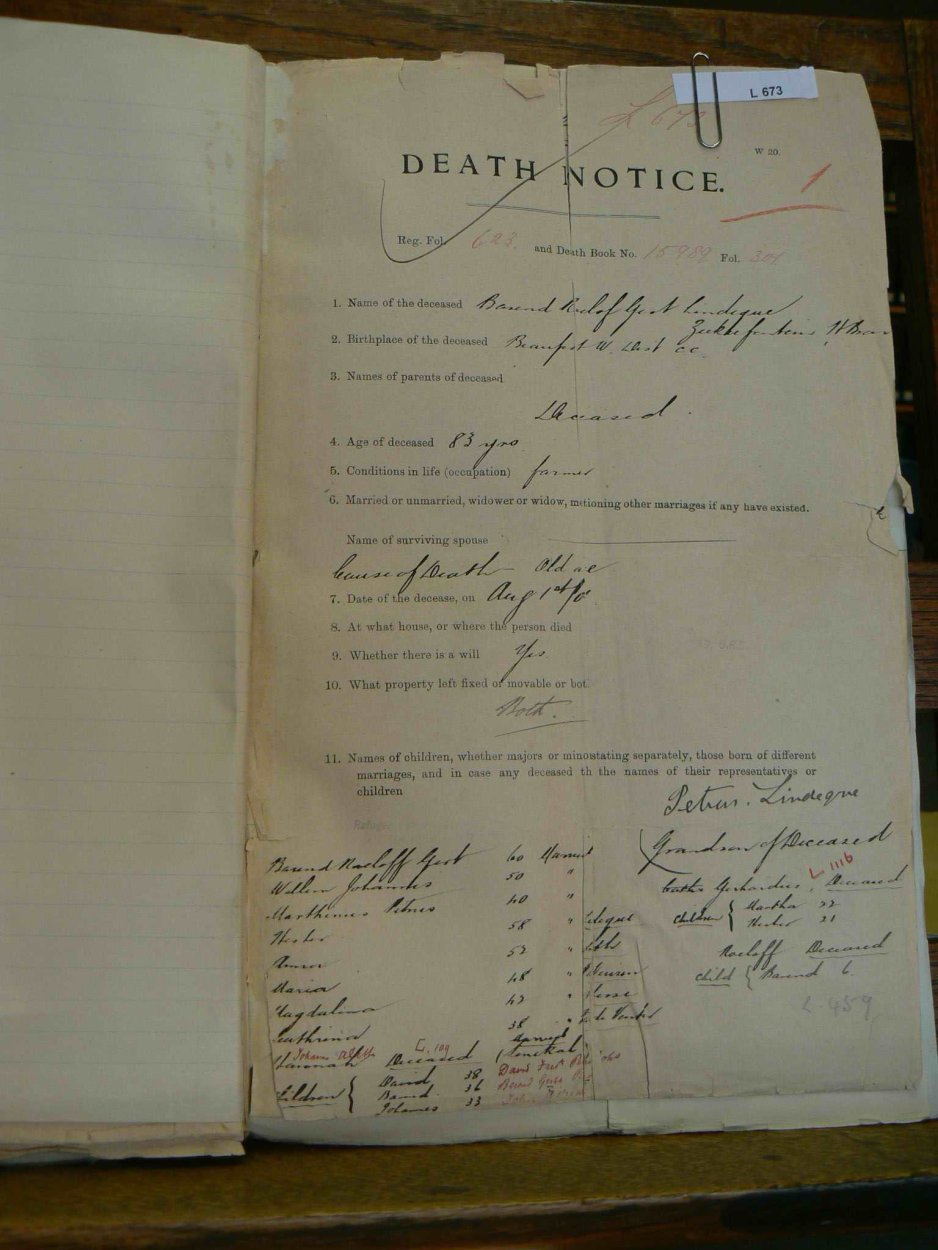 L 673
L 673
W 20.
DEATH NOTICE.
1
Reg. Fol. 623. and Death Book No. 15989 Fol. 301
1. Name of the deceased Barend Roelof Gert Lindeque
2. Birthplace of the deceased Beaufort W. Dist CC
3. Names of parents of deceased
Deceased.
4. Age of deceased 83 yrs
5. Conditions in life (occupation) farmer
6. Married or unmarried, widower or widow, mentioning other marriages if any have existed.
Name of surviving spouse
Cause of Death Old age
7. Date of the decease, on Aug 1st
8. At what house, or where the person died
9. Whether there is a will Yes
10. What property left fixed or movable or bot
Both.
11. Names of children, whether majors or mino stating separately, those born of different
marriages, and in case any deceased th the names of their representatives or
children
Petrus Lindeque
Grandson of Deceased
Refugee
Barend Roeloff Gert 60 Married
Willem Johannes 50 "
Marthinus Petrus 40 "
Hester 58 "
Anna 52 "
Maria 48 "
Magdalina 42 "
Cathrina 38 "
Susannah Deceased L. 109
Children { David 38
Barend 36
Johannes 33
Gerhardus, Deceased L 1116
Children { Martha 22
Hester 21
Roeloff Deceased
Child { Barend 6.
L 459